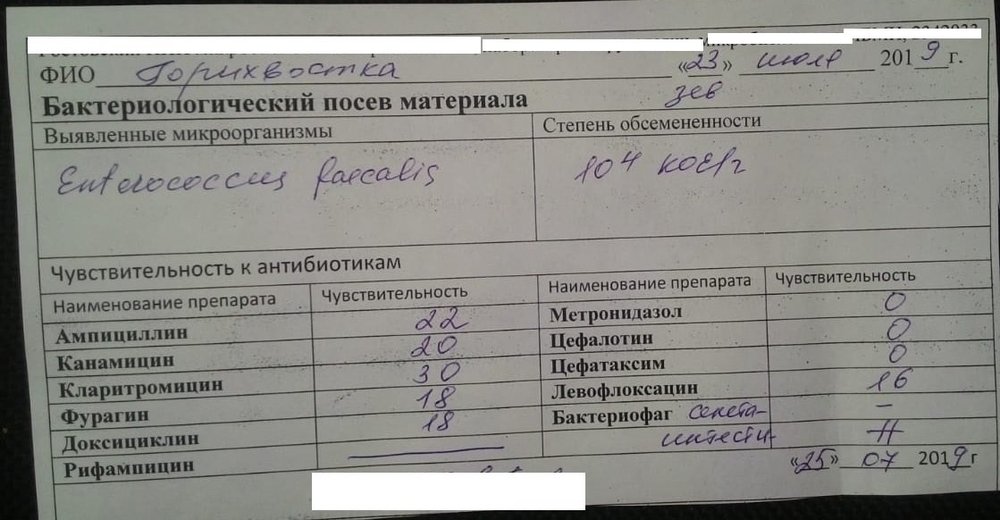 ФИО Горихвостка «23» июля 2019 г.
Бактериологический посев материала зев
Выявленные микроорганизмы Степень обсемененности
Enterococcus faecalis 10⁴ КОЕ/г
Чувствительность к антибиотикам
Наименование препарата Чувствительность Наименование препарата Чувствительность
Ампициллин 22 Метронидазол 0
Канамицин 20 Цефалотин 0
Кларитромицин 30 Цефатаксим 0
Фурагин 18 Левофлоксацин 16
Доксициклин 18 Бактериофаг секста- –
Рифампицин — интести-
«25» 07 2019 г